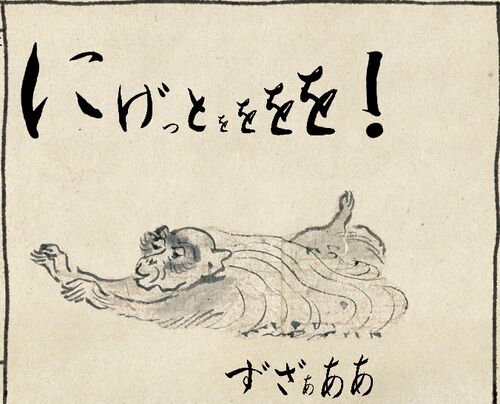 にげっとをををを!
ずざぁああ